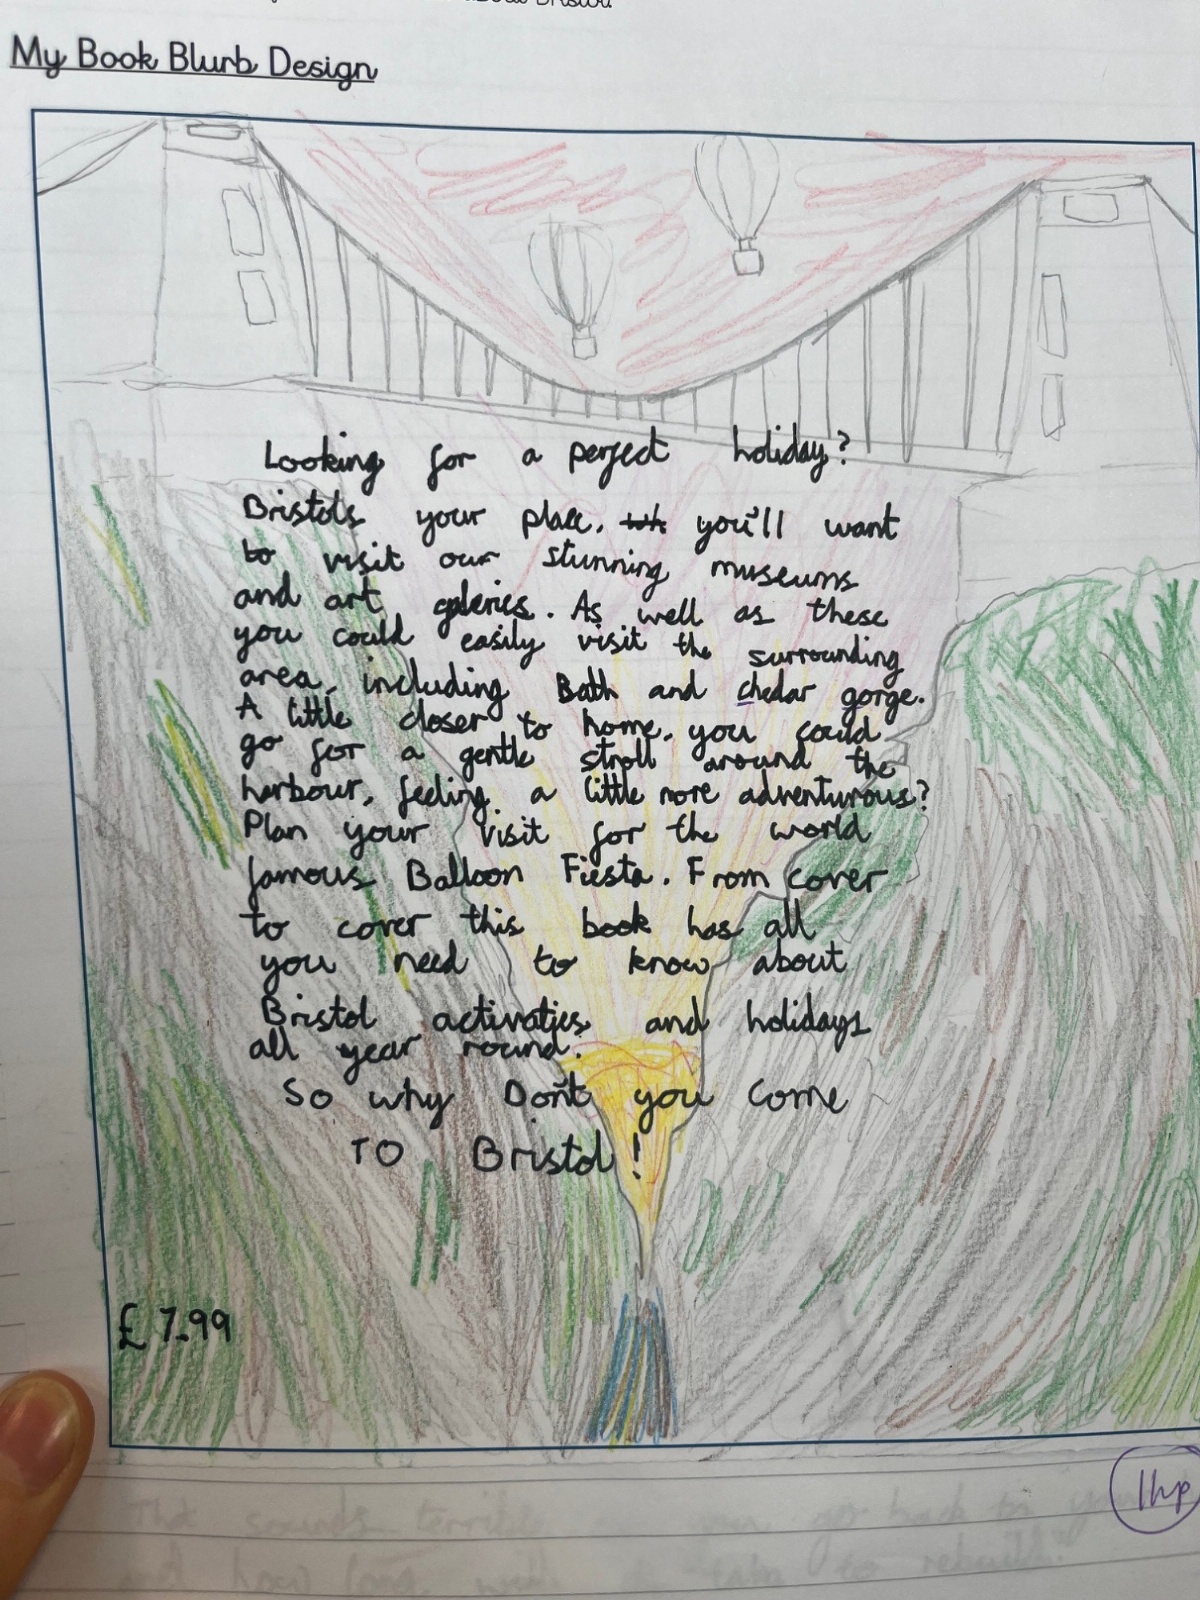 My Book Blurb Design
Looking for a perfect holiday?
Bristols your place. you'll want
to visit our stunning museums
and art galeries. As well as these
you could easily visit the surrounding
area, including Bath and chedar gorge.
A little closer to home, you could
go for a gentle stroll around the
harbour, feeling a little more adventurous?
Plan your visit for the world
famous Balloon Fiesta. From cover
to cover this book has all
you need to know about
Bristol activaties and holidays
all year round.
So why Don't you come
TO Bristol!
£7.99
1hp